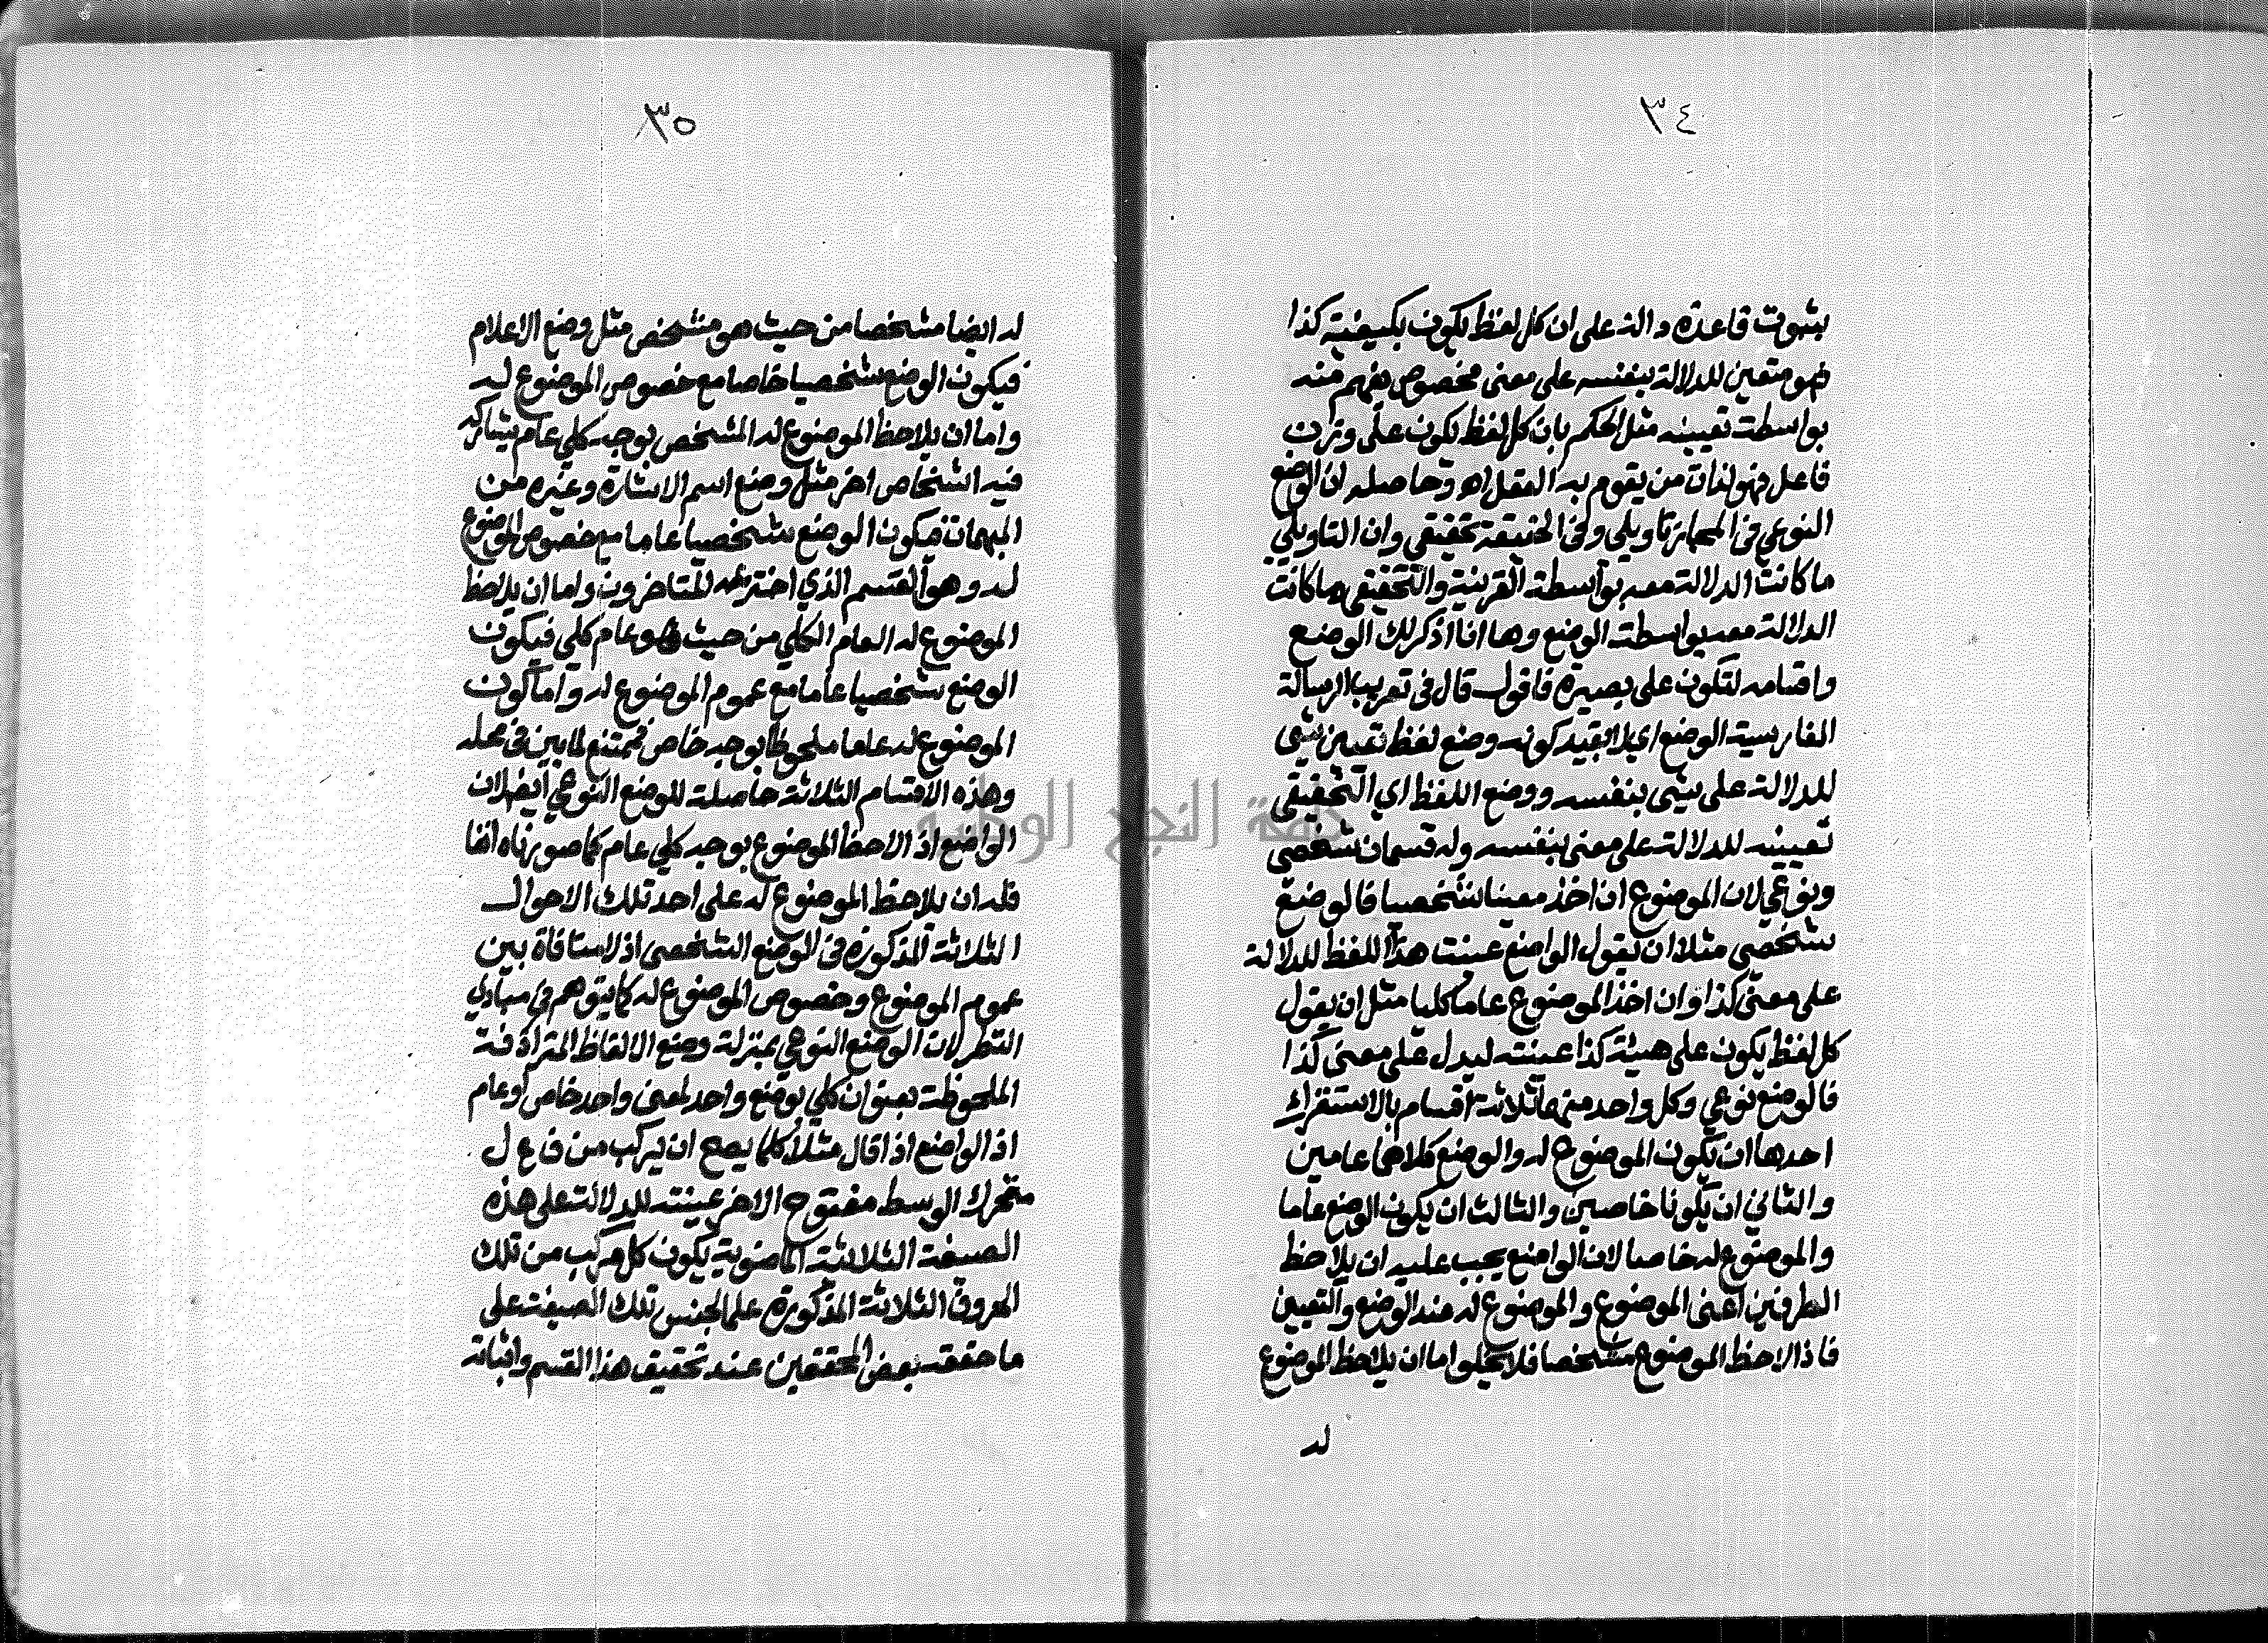 ٣٤
بثبوت قاعدة دالة على ان كل لفظ يكون بكيفية كذا
فهو متعين للدلالة بنفسه على معنى مخصوص يفهم منه
بواسطة تعيينه مثل الحكم بان كل لفظ يكون على وزن
فاعل فهو لذات من يقوم به الفعل اه وحاصله ان الوضع
النوعي في المجاز تاويلي وفي الحقيقة تحقيقي وان التاويلي
ما كانت الدلالة معه بواسطة القرينة والتحقيقي ما كانت
الدلالة معه بواسطة الوضع وها انا اذكر لك الوضع
واقسامه لتكون على بصيرة فاقول قال في تعريب الرسالة
الفارسية الوضع اي لا بقيد كونه وضع لفظ تعيين شي
للدلالة على شيئ بنفسه ووضع اللفظ اي التحقيقي
تعيينه للدلالة على معنى بنفسه وله قسمان شخصي
ونوعي لان الموضوع ان اخذ معينا شخصيا فالوضع
شخصي مثلا ان يقول الواضع عينت هذا اللفظ للدلالة
على معنى كذا وان اخذ الموضوع عاما كليا مثل ان يقول
كل لفظ يكون على هيئة كذا عينته ليدل على معنى كذا
فالوضع نوعي وكل واحد منهما ثلاثة اقسام بالاستقراء
احدها ان يكون الموضوع له والوضع كلاهما عامين
والثاني ان يكونا خاصين والثالث ان يكون الوضع عاما
والموضوع له خاصا لان الواضع يجب عليه ان يلاحظ
الطرفين اعني الموضوع والموضوع له عند الوضع والتعيين
فاذا لاحظ الموضوع مشخصا فلا يخلوا اما ان يلاحظ الموضوع
له
٣٥
له ايضا مشخصا من حيث هو مشخص مثل وضع الاعلام
فيكون الوضع شخصيا خاصا مع خصوص الموضوع له
واما ان يلاحظ الموضوع له المشخص بوجه كلي عام يشاركه
فيه اشخاص اخر مثل وضع اسم الاشارة وغيره من
المبهمات فيكون الوضع شخصيا عاما مع خصوص الموضوع
له وهو القسم الذي اخترعه المتاخرون واما ان يلاحظ
الموضوع له العام الكلي من حيث هو عام كلي فيكون
الوضع شخصيا عاما مع عموم الموضوع له واما كون
الموضوع له عاما ملحوظا بوجه خاص فممتنع لما بين في محله
وهذه الاقسام الثلاثة حاصلة للوضع النوعي ايضا لان
الواضع اذا لاحظ الموضوع بوجه كلي عام كما صورناه انفا
فله ان يلاحظ الموضوع له على احد تلك الاحوال
الثلاثة المذكورة في الوضع الشخصي اذ لا منافاة بين
عموم الموضوع وخصوص الموضوع له كما يتوهم في مبادي
النظر لان الوضع النوعي بمنزلة وضع الالفاظ المترادفة
الملحوظة بعنوان كلي بوضع واحد لمعنى واحد خاص او عام
اذ الواضع اذا قال مثلا كلما يصح ان يركب من ف ع ل
متحرك الوسط مفتوح الاخر عينته للدلالة على هذه
الصيغة الثلاثية الماضوية يكون كل مركب من تلك
الحروف الثلاثة المذكورة علما لجنس تلك الصيغة على
ما حققه بعض المحققين عند تحقيق هذا القسم واثباته
جامعة النجاح الوطنية